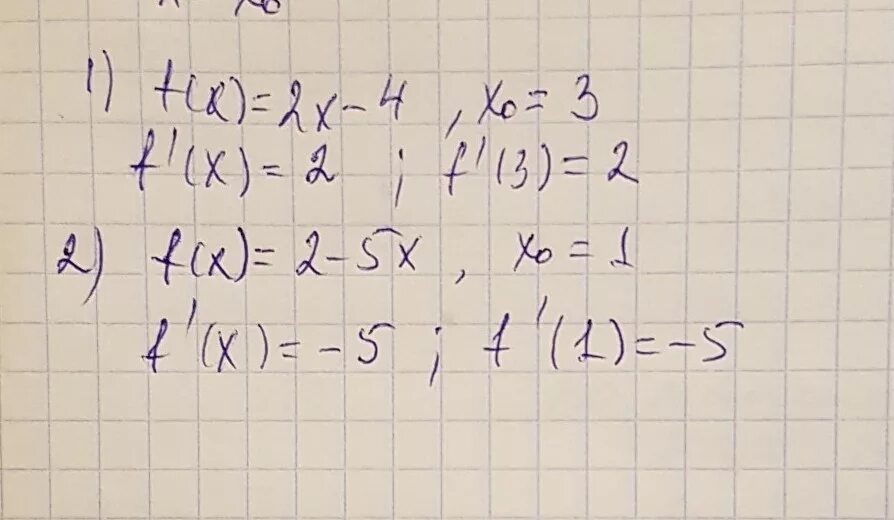 1) f(x) = 2x - 4 , x₀ = 3
f'(x) = 2 ; f'(3) = 2
2) f(x) = 2 - 5x , x₀ = 1
f'(x) = -5 ; f'(1) = -5